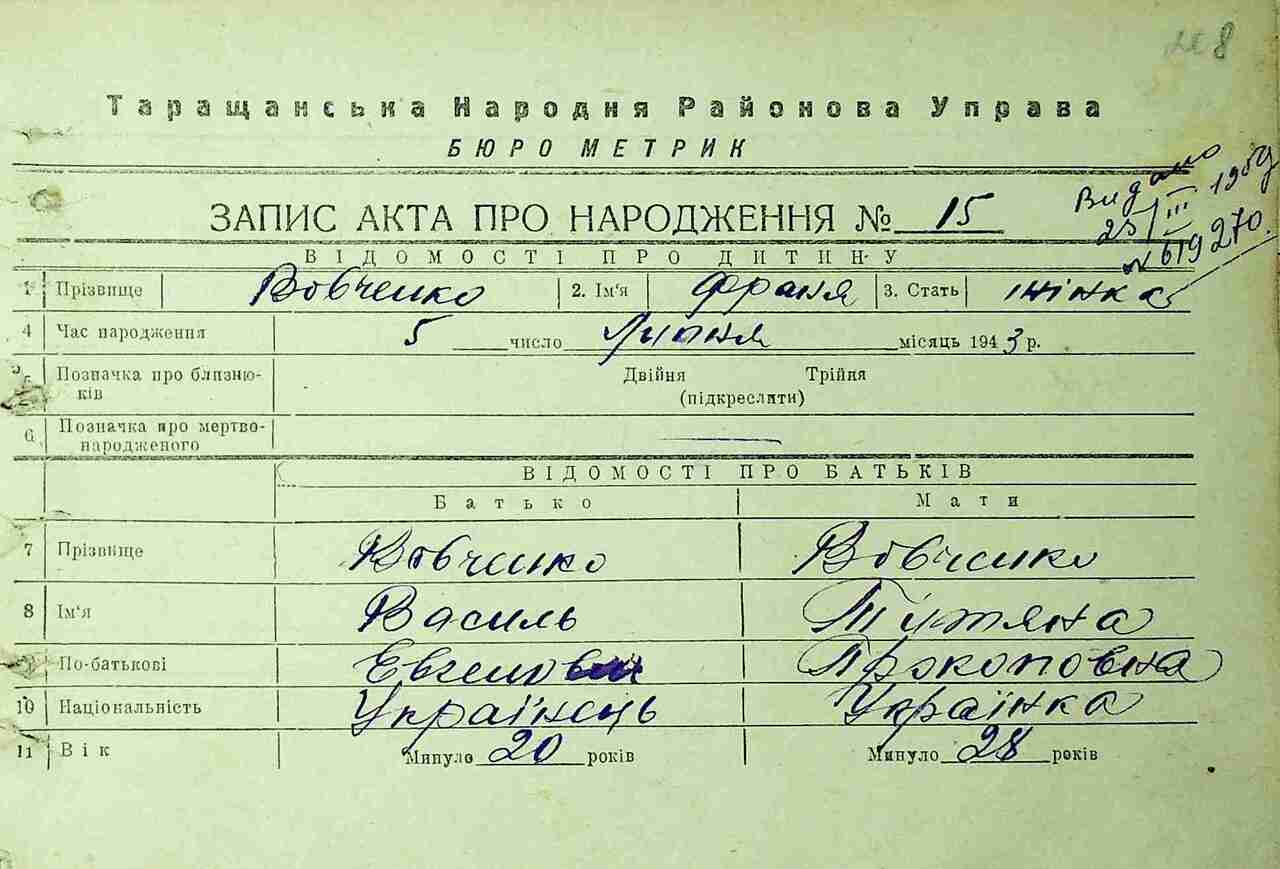 8
Таращанська Народня Районова Управа
БЮРО МЕТРИК
Видано
25/III 1959
№ 619270.
ЗАПИС АКТА ПРО НАРОДЖЕННЯ № 15
ВІДОМОСТІ ПРО ДИТИНУ
1 Прізвище Вовченко 2. Ім'я Франя 3. Стать жінка
4 Час народження 5 число Липня місяць 1943 р.
5 Позначка про близню- Двійня Трійня
ків (підкреслити)
6 Позначка про мертво-
народженого
ВІДОМОСТІ ПРО БАТЬКІВ
Батько Мати
7 Прізвище Вовченко Вовченко
8 Ім'я Василь Титяна
9 По-батькові Прокоповна
10 Національність Українець Українка
11 Вік Минуло 20 років Минуло 28 років